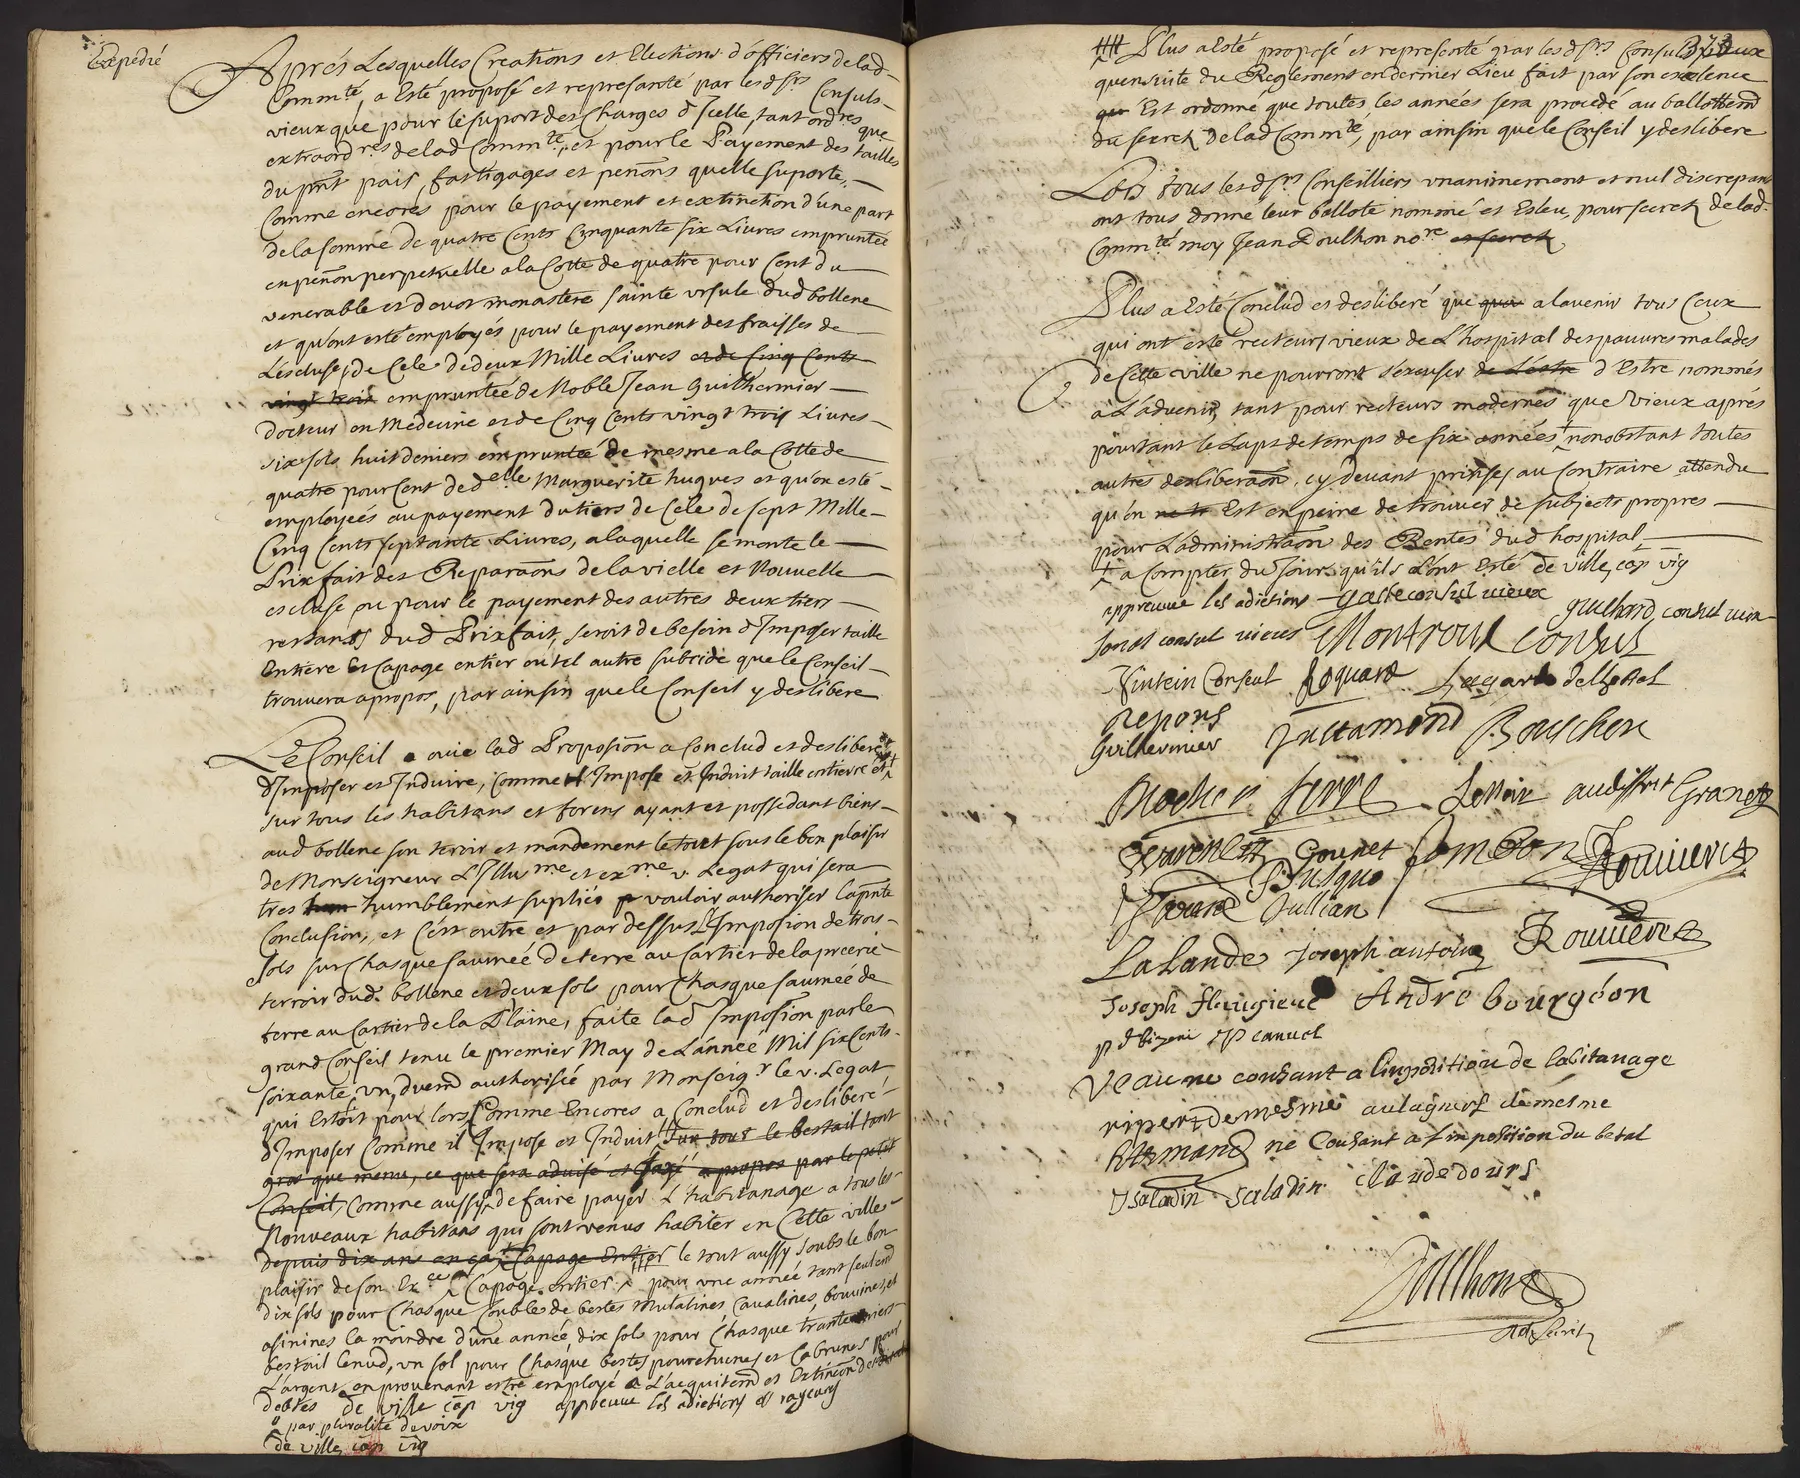 Expedié
Aprés Lesquelles Creations et Elections d'officiers de lad.
Comm.té, a Esté proposé et representé par les d. s.rs Consuls
vieux que pour le suport des Charges d'Icelle, tant ord.res que
extraord.res de lad Comm.te, et pour le Payement des tailles
du pnt pais, fastigages et penõns quelle suporte,
Comme encores pour le payement et extinction d'une part
de la somme de quatre Cents Cinquante six Livres empruntée
en penõn perpetuelle a la Cotte de quatre pour Cent du
venerable et devot monastere sainte ursule dud bollene
et qu'ont esté employés pour le payement des fraisses de
L'escluse, de Cele de deux Mille Livres et de Cinq Cents
vingt trois empruntée de Noble Jean Guilhermier
Docteur en Medecine et de Cinq Cents vingt trois Livres
six sols huit deniers empruntée de mesme a la Cotte de
quatre pour Cent de d.elle Marguerite hugues et qu'ont esté
employeés au payement du tiers de Cele de sept Mille
Cinq Cents septante Livres, a laquelle se monte le
Prixfait des Reparaõns de la vielle et Nouvelle
escluse ou pour le payement des autres deux tiers
restants dud Prixfait, seroit de besoin d'Imposer taille
Entiere Et Capage entier ou tel autre subside que le Conseil
trouvera a propos, par ainsin que le Conseil y deslibere
Le Conseil ouie lad Proposiõn a Conclud et desliberé
d'Imposer et Induire, Comme Il Impose et Induit taille entierre et
sur tous les habitans et forens ayant et possedant biens
aud bollene son teroir et mandement le tout sous le bon plaisir
de Monseigneur L'Illu.me et ex.me v. Legat qui sera
tres humblement suplié vouloir authoriser la pnte
Conclusion, et C'est outre et par dessus L'Imposiõn de trois
sols sur Chasque saumeé de terre au Cartier de la
terroir dud. bollene et deux sols pour Chasque saumeé de
terre au Cartier de la Plaine, faite lad Imposiõn par le
grand Conseil tenu le premier May de L'année Mil six Cents
soixante un, duem authorisée par Monseig.r le v. Legat
qui Estoit pour lors Comme Encores a Conclud et desliberé
d'Imposer Comme il Impose et Induit sur tous le bestail tant
gros que menu, ce que sera advisé et taxé a propos par le petit
Conseil, Comme aussy de faire payer L'habitanage a tous les
Nouveaux habitans qui sont venus habiter en Cette ville
depuis dix ans en ça, Capage Entier le tout aussy soubs le bon
plaisir de son Ex.ce Capage entier pour une année tant seulem
dix sols pour Chasque Couble de bestes mulatines, Cavalines, bouvines, et
asinines la moindre d'une année, dix sols pour Chasque trantenier
bestail Lenud, un sol pour Chasque bestes pourchines et Cabrunes pour
L'argent en provenant estre employé a L'acquitem et Extinceõn des
debtes de ville cap vig appreuve les adictions et rayeures
par pluralite de voix
de ville cap vig
373
Plus a Esté proposé et representé par les d s.rs Consuls vieux
qu'ensuite du Reglement en dernier Lieu fait par son excelence
Est ordonné que toutes les années sera procedé au ballottem
du secret.e de lad Comm.té, par ainsin que le Conseil y deslibere
Lors tous les d s.rs Conseilliers unanimement et nul discrepant
ont tous donne leur ballote nommé et Esleu, pour secret.e de lad.
Comm.té moy Jean Doulhon no.re et secret.e
Plus a Esté Conclud et desliberé que a l'avenir tous Ceux
qui ont esté recteurs vieux de L'hospital des pauvres malades
de Cette ville ne pourront s'éxcuser de L'estre d'Estre nommés
a L'advenir, tant pour recteurs modernes que vieux aprés
pourtant le Laps de temps de six années nonobstant toutes
autres desliberaõn cy devant prinses au Contraire attendu
qu'on Est en peine de trouver de subjects propres
pour L'administraõn des Rentes dud hospital
a Compter du Jour qu'ils L'ont Esté de ville, cap vig
appreuve les adictions Gaste consul vieux
Guilhard consul vieux
consul vieux Montroux Consul
Consul Roquard Lagarde
Repons
Guilhermier Juttamond Bouschon
Rochier Serre Lenoir audiffret Granet
Gounet Jambon Rouviere
Susquo
Jullian
La Lande Joseph antoine Rouviere
Joseph André bourgéon
canvel
Veaune consant a l'inposition de l'abitanage
ripert de mesme de mesme
ne Consant a l'inposition du betal
saladin claude dours
Doulhon
No.re Secret.e